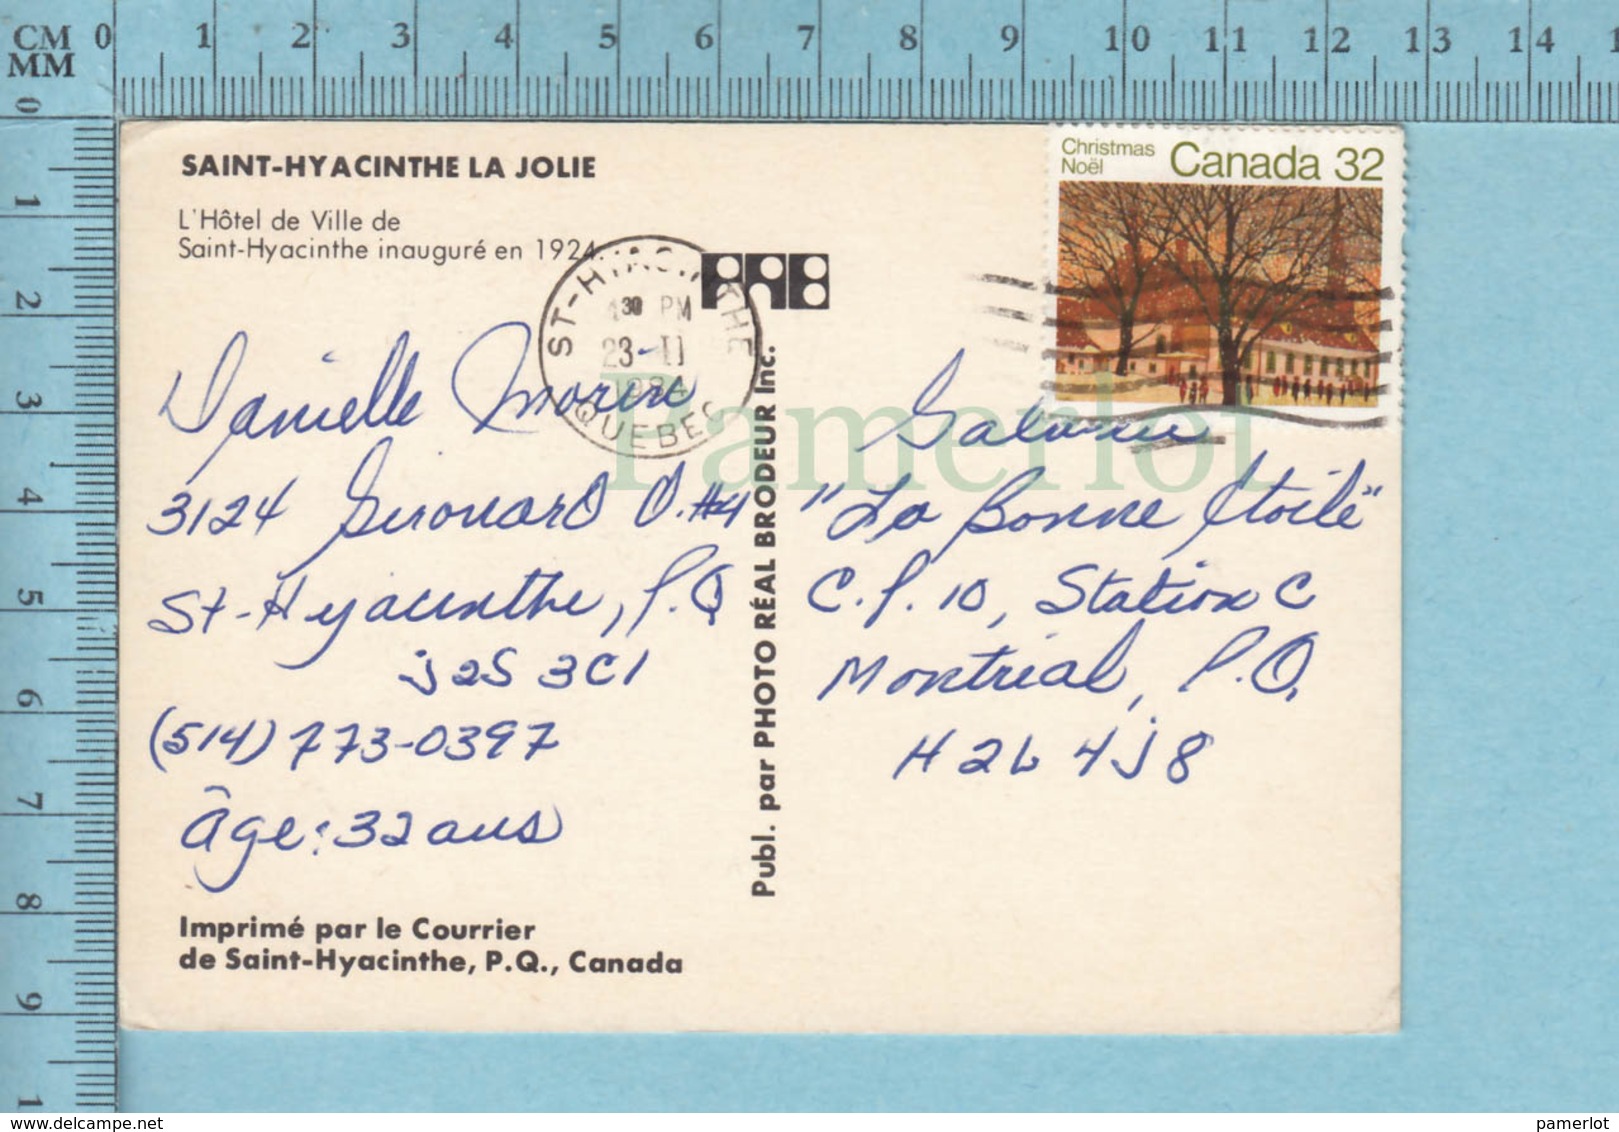 CM 0 1 2 3 4 5 6 7 8 9 10 11 12 13 14 1
MM
0 1 2 3 4 5 6 7 8 9 1
SAINT-HYACINTHE LA JOLIE
L'Hôtel de Ville de
Saint-Hyacinthe inauguré en 1924.
Christmas
Noël
Canada 32
ST-HYACINTHE
430 PM
23-II
1984
QUEBEC
Danielle Morin
3124 Girouard O. #4
St-Hyacinthe, P.Q
J2S 3C1
(514) 773-0397
Âge: 32 ans
Imprimé par le Courrier
de Saint-Hyacinthe, P.Q., Canada
Publ. par PHOTO RÉAL BRODEUR Inc.
"La Bonne Étoile"
C.P. 10, Station C
Montréal, P.Q.
H2L 4J8
Pamerlot
delcampe.net
pamerlot